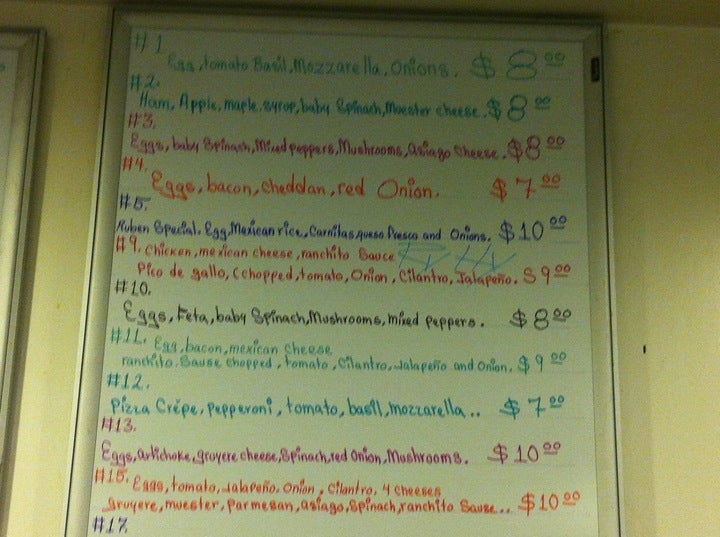 #1
Egg, tomato Basil, Mozzarella, Onions. $ 8.00
#2.
Ham, Apple, maple syrup, baby Spinach, Muester cheese. $ 8.00
#3.
Eggs, baby Spinach, Mixed peppers, Mushrooms, asiago Cheese. $8.00
#4.
Eggs, bacon, cheddan, red Onion. $ 7.00
#5.
Ruben Special. Egg, Mexican rice, Carnitas, queso fresco and Onions. $ 10.00
#9. Chicken, mexican cheese, ranchito Sauce
Pico de gallo, (chopped, tomato, Onion, Cilantro, Jalapeño. $ 9.00
#10.
Eggs, Feta, baby Spinach, Mushrooms, mixed peppers. $ 8.00
#11. Egg, bacon, mexican cheese
ranchito. Sause chopped, tomato, Cilantro, Jalapeño and Onion. $ 9.00
#12.
Pizza Crêpe, pepperoni, tomato, basil, mozzarella.. $ 7.00
#13.
Eggs, artichoke, gruyere cheese, Spinach, red Onion, Mushrooms. $ 10.00
#15. Eggs, tomato, Jalapeño. Onion, Cilantro, 4 Cheeses
gruyere, muester, Parmesan, asiago, Spinach, ranchito Sause.. $10.00
#17.